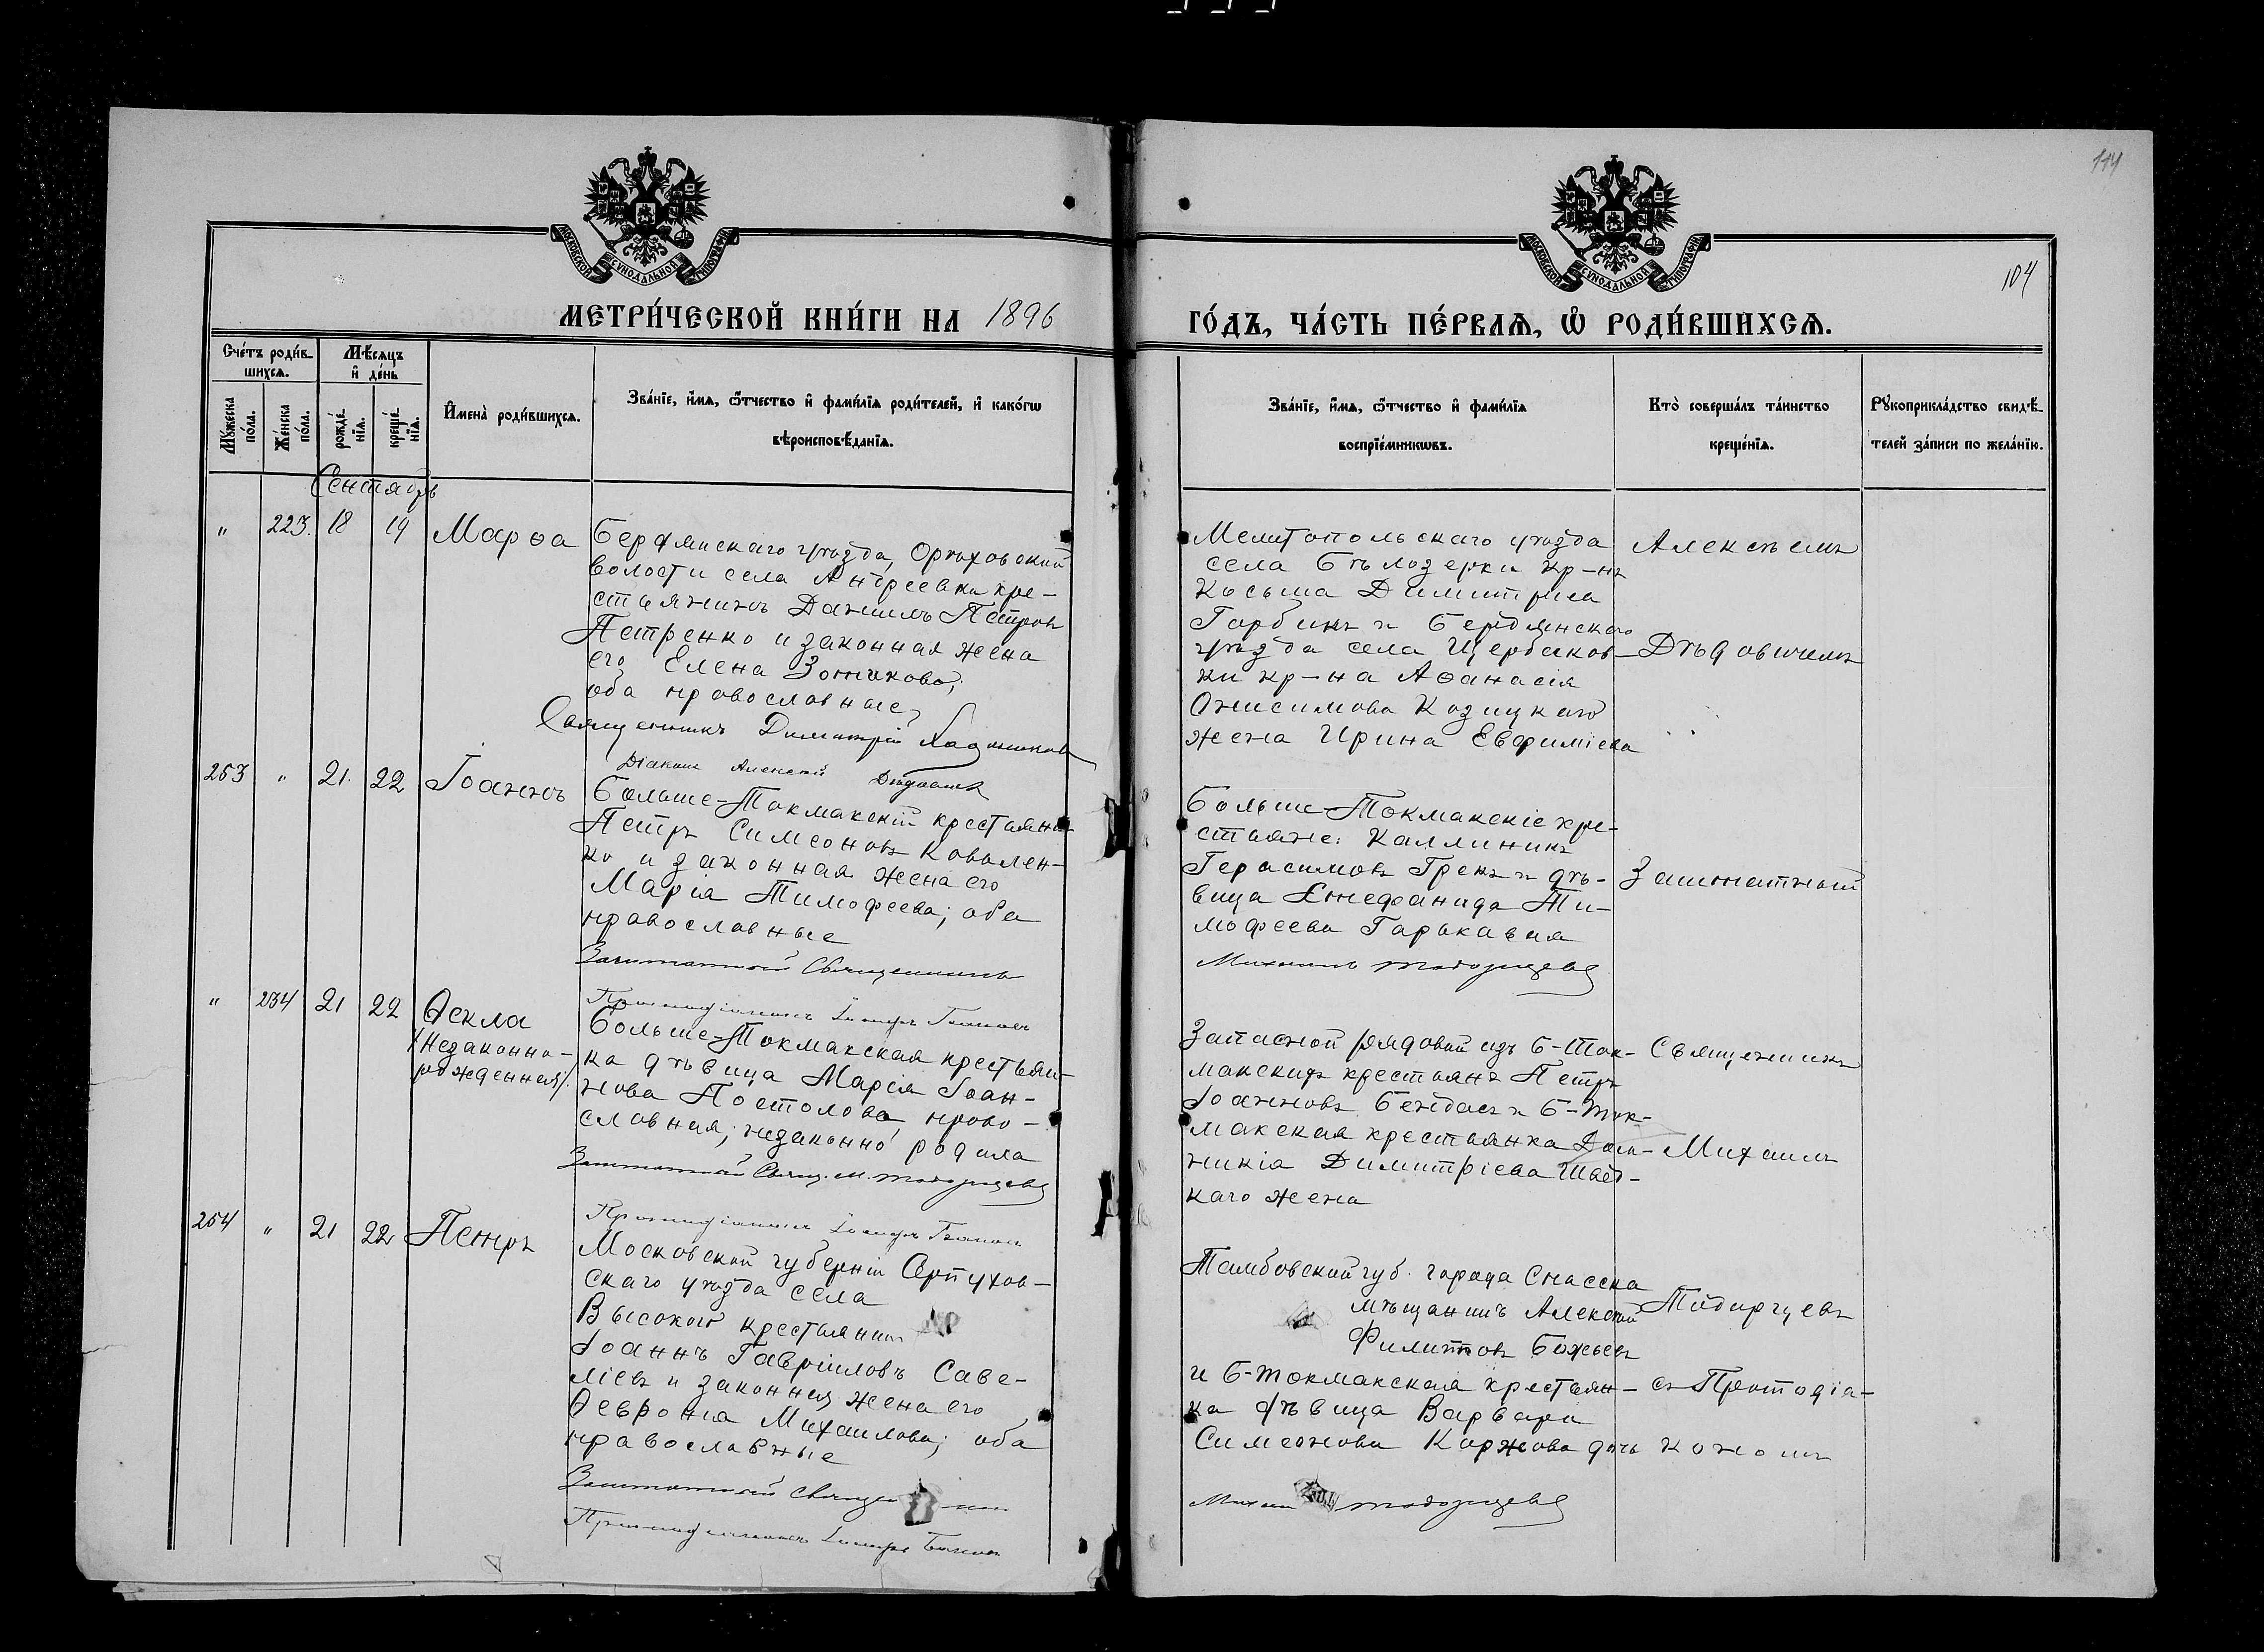 114
МОСКОВСКОЙ СѴНОДАЛЬНОЙ ТИПОГРАФІИ
МОСКОВСКОЙ СѴНОДАЛЬНОЙ ТИПОГРАФІИ
104
МЕТРИ́ЧЕСКОЙ КНИ́ГИ НА 1896
ГО́ДЪ, ЧА́СТЬ ПЕ́РВАѦ, Ѽ РОДИ́ВШИХСѦ.
Сче́тъ роди́в-
шихсѧ.
Мѣ́сѧцъ
и҆ де́нь
Мꙋ́жеска
по́ла.
Же́нска
по́ла.
рожде́-
нїѧ.
креще́-
нїѧ.
И҆мена̀ роди́вшихсѧ.
Зва́нїе, и҆́мѧ, ѻ҆́тчество и҆ фами́лїѧ роди́телей, и҆ како́гѡ
вѣроисповѣ́данїѧ.
Зва́нїе, и҆́мѧ, ѻ҆́тчество и҆ фами́лїѧ
воспрїе́мникѡвъ.
Кто̀ соверша́лъ та́инство
креще́нїѧ.
Рꙋкоприкла́дство свидѣ́-
телей за́писи по жела́нїю.
Сентябрь
" 223. 18 19 Марѳа
Бердянскаго уѣзда, Орѣховской
волости села Андреевки кре-
стьянинъ Даниилъ Петровъ
Петренко и законная жена
его Елена
оба православные
Священникъ Димитрій
Діаконъ Алексѣй Дѣдовичъ
Мелитопольскаго уѣзда
села Бѣлозерки кр-нъ
Косьма Димитріевъ
Горбикъ и Бердянскаго
уѣзда села Щербаков-
ки кр-на Аѳанасія
Онисимова Козицкаго
жена Ирина Евфиміева
Алексѣемъ
Дѣдовичемъ
253 " 21. 22 Іоаннъ
Больше-Токмакскій крестьянинъ
Петръ Симеоновъ Ковален-
ко и законная жена его
Марія Тимофеева; оба
православные
Заштатный Священникъ
Протодіаконъ
Больше-Токмакскіе кре-
стьяне: Каллиникъ
Герасимовъ Грекъ и дѣ-
вица Епистефанида Ти-
мофеева Гаркавая
Михаилъ Тодорцевъ
Заштатный
" 234 21 22 Ѳекла
/Незаконно-
рожденная/.
Больше-Токмакская крестьян-
ка дѣвица Марія Іоан-
нова Постолова право-
славная; незаконно родила
Заштатный Свящ. М. Тодорцевъ
Протодіаконъ
Запасной рядовой изъ Б-Ток-
макскихъ крестьянъ Петръ
Іоанновъ Бендасъ и Б-Ток-
макская крестьянка Дом-
никія Димитріева
каго жена
Священникъ
Михаилъ
254 " 21 22 Петръ
Московской губерніи Серпухов-
скаго уѣзда села
Высокаго крестьянинъ
Іоаннъ Гавріиловъ Саве-
ліевъ и законная жена его
Ѳевронія Михаилова; оба
православные
Заштатный
Протодіаконъ
Тамбовской губ. города Спасска
мѣщанинъ Алексѣй
Филипповъ Божьевъ
и Б-Токмакская крестьян-
ка дѣвица Варвара
Симеонова Коржова дочь
Михаилъ Тодорцевъ
Тодорцевъ
съ Протодіа-
кономъ